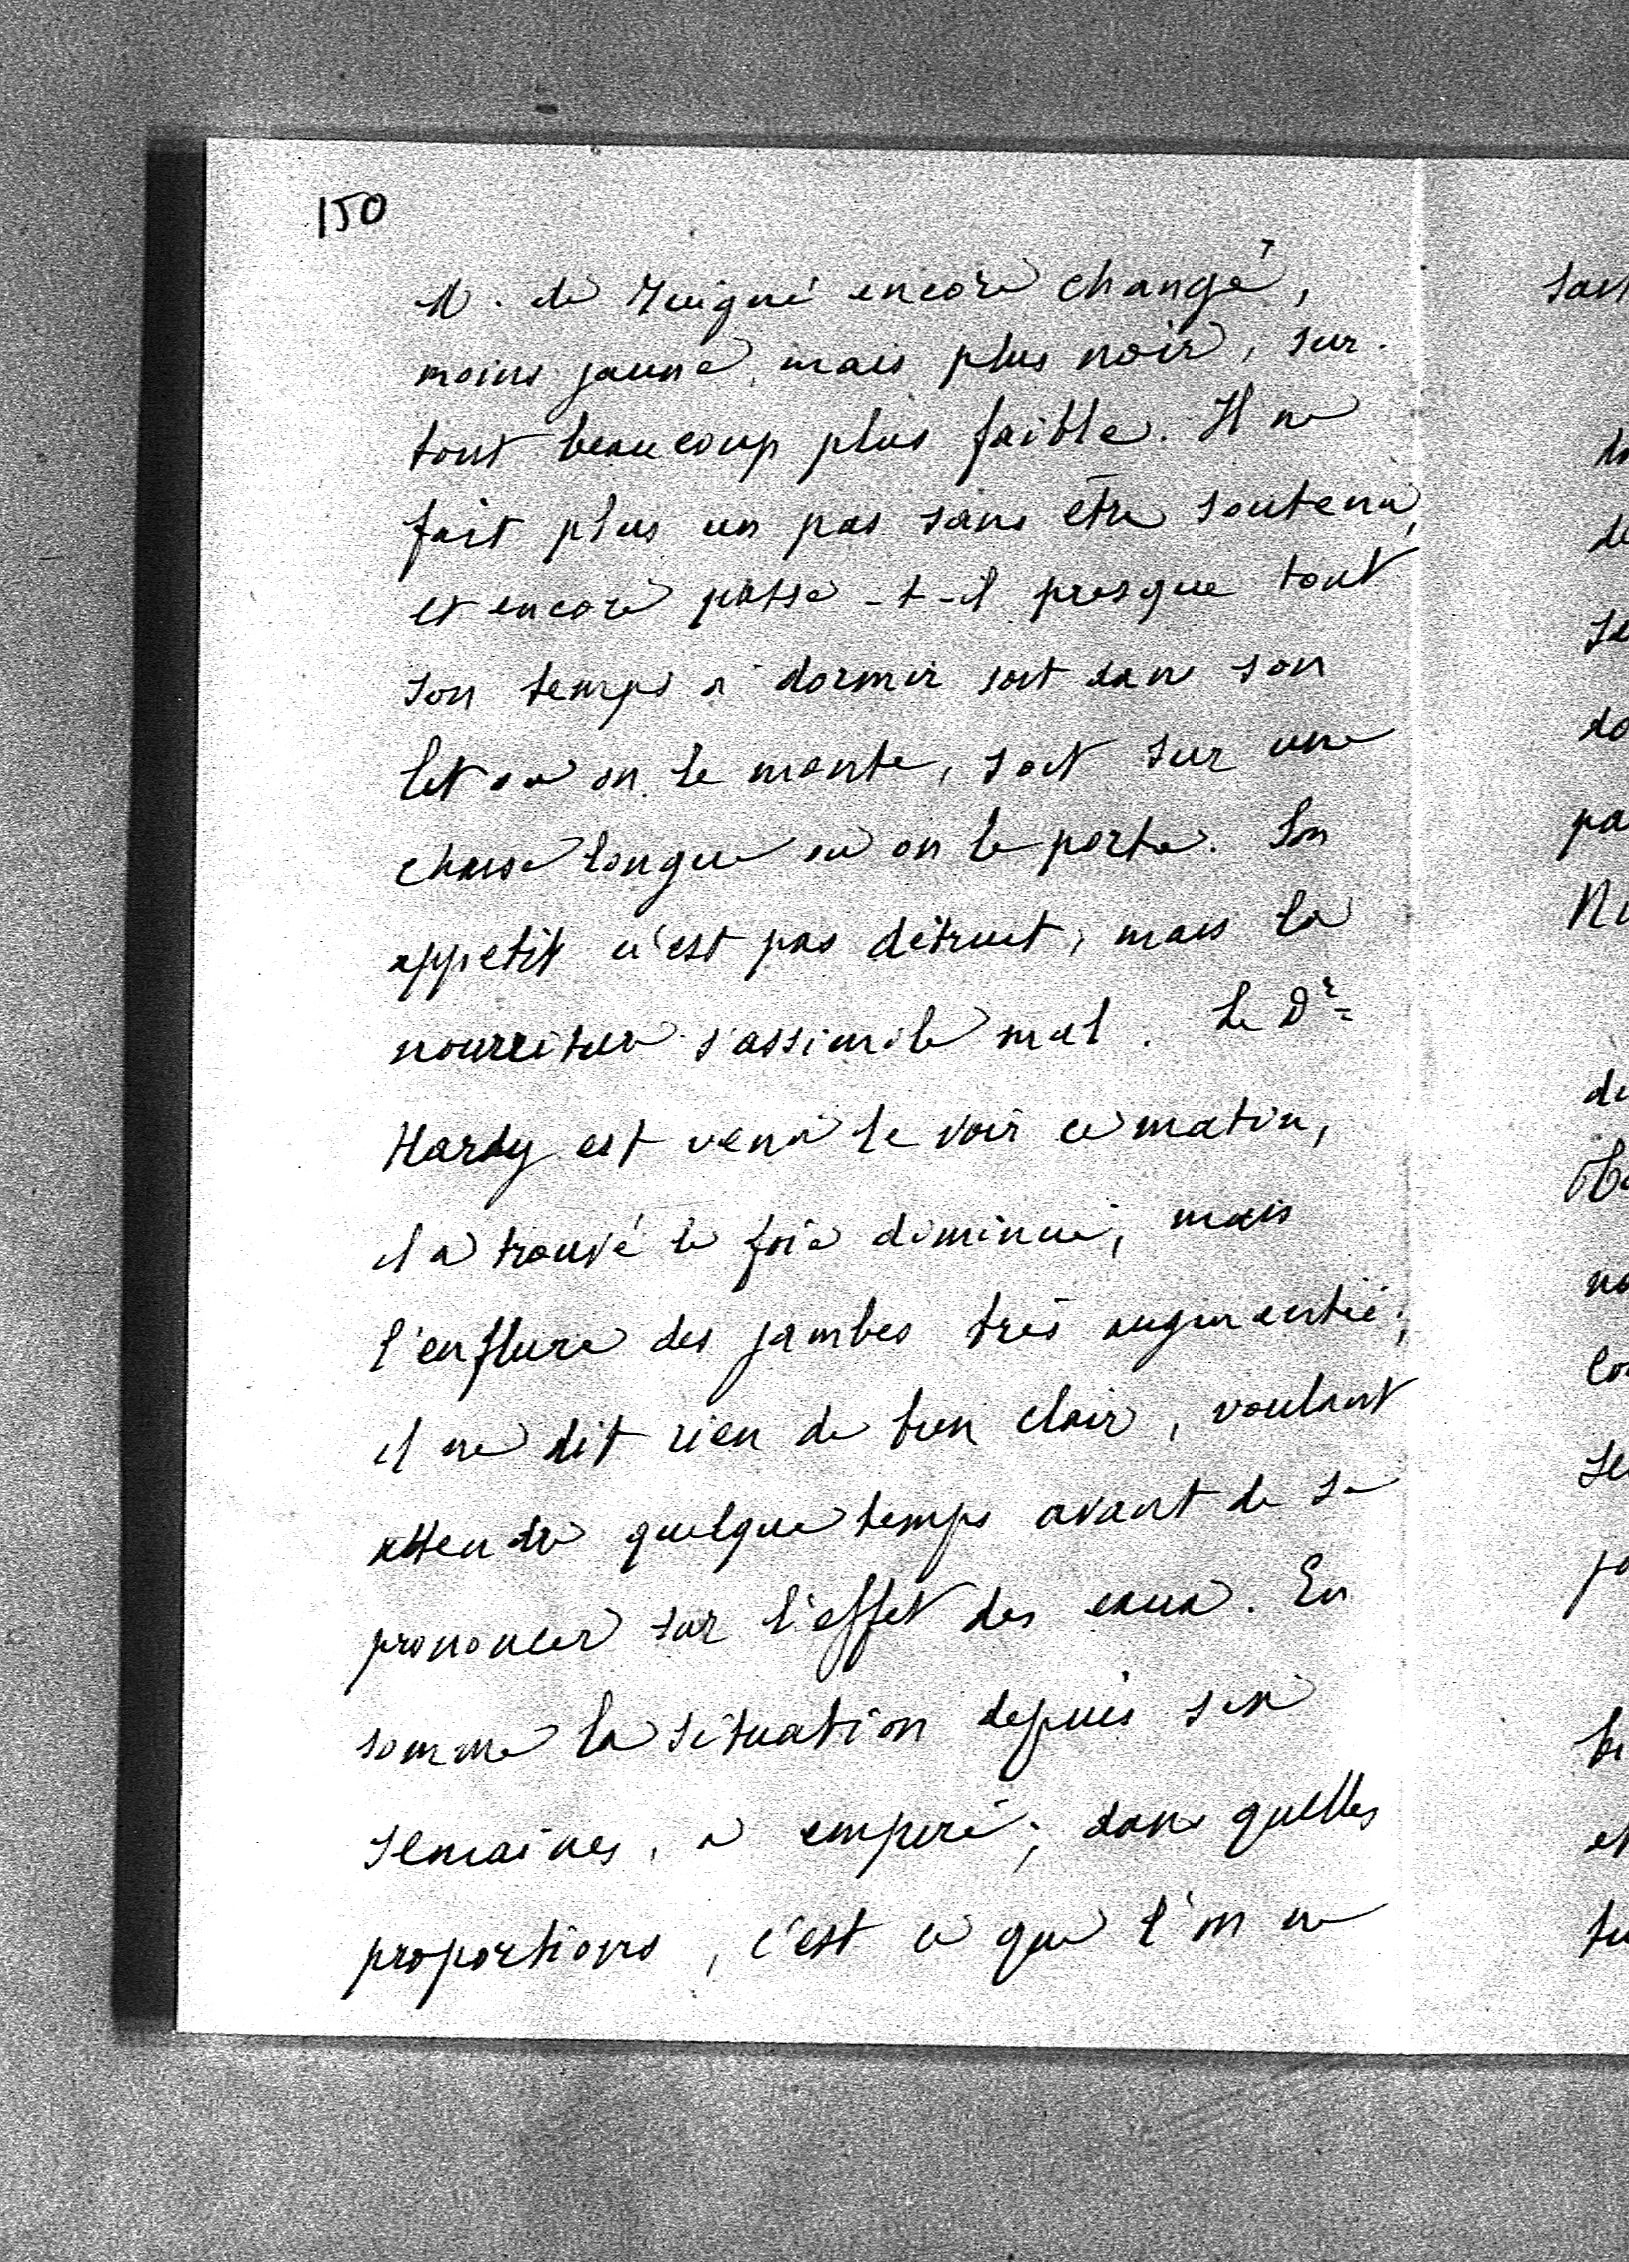 150
M. de Juigné encore changé,
moins jaune, mais plus noir, sur-
tout beaucoup plus faible. Il ne
fait plus un pas sans être soutenu,
et encore passe-t-il presque tout
son temps à dormir soit dans son
lit où on le monte, soit sur une
chaise longue où on le porte. Son
appétit n'est pas détruit, mais la
nourriture s'assimile mal. Le Dr
Hardy est venu le voir ce matin,
il a trouvé le foie diminué, mais
l'enflure des jambes très augmentée;
il ne dit rien de bien clair, voulant
attendre quelque temps avant de se
prononcer sur l'effet des eaux. En
somme la situation depuis six
semaines, a empiré; dans quelles
proportions, c'est ce que l'on ne